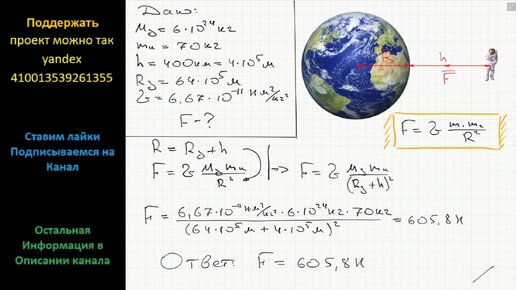 Поддержать
проект можно так
yandex
410013539261355
Ставим лайки
Подписываемся на
Канал
Остальная
Информация в
Описании канала
Дано:
Mз = 6·10²⁴кг
mк = 70кг
h = 400км = 4·10⁵м
Rз = 64·10⁵м
G = 6,67·10⁻¹¹ Н м²/кг²
F = ?
R
h
F
F = G m₁m₂/R²
R = Rз + h
F = G Mз mк/R² |=> F = G Mз mк/(Rз + h)²
F = 6,67·10⁻¹¹ Н м²/кг² · 6·10²⁴кг · 70кг/(64·10⁵м + 4·10⁵м)² = 605,8Н
Ответ: F = 605,8Н